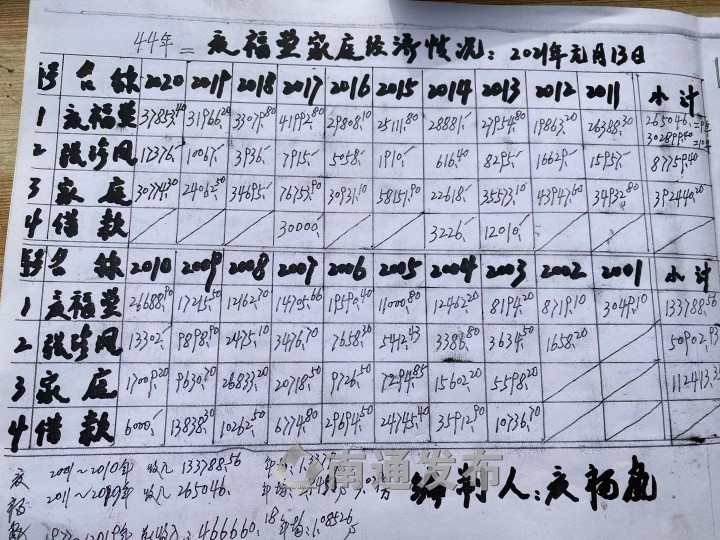 44年 = 庆福堂家庭经济情况：2021年元月13日
号 名称 2020 2019 2018 2017 2016 2015 2014 2013 2012 2011 小计
1 庆福堂 37853.40 31966.20 33079.80 41992.80 29808.10 25111.80 28881.- 27954.80 19863.20 26388.30 265046.=9年 302899.50=10年
2 张珍凤 17376.- 10067.- 3936.- 7915.- 5058.- 1910.- 616.40 8295.- 16629.- 15957.- 87759.40
3 家庭 30774.30 24062.50 34695.- 76753.90 30931.10 58151.90 22618.- 35573.10 43947.60 34932.80 392440.20
4 借款 30000.- 3226.- 12010.-
号 名称 2010 2009 2008 2007 2006 2005 2004 2003 2002 2001 小计
1 庆福堂 26688.90 17245.50 12162.70 14705.66 19590.40 11000.80 12462.20 8194.20 8719.10 3049.10 133788.56
2 张珍凤 13302.- 9898.90 2475.10 3476.70 7658.30 5412.43 3386.80 3634.50 1658.20 50902.93
3 家庭 17009.20 9630.70 26833.20 20718.50 9726.50 7294.85 15602.20 5598.20 112413.35
4 借款 6000.- 13838.30 10262.50 6774.80 29694.50 24745.40 35912.90 10736.70
庆 2001～2010年 收入 133788.56 年均:1.337
福 2011～2019年 收入 265046. 年均:
总收入:466660.18 年均:1.08526万
编制人：庆福堂
南通发布